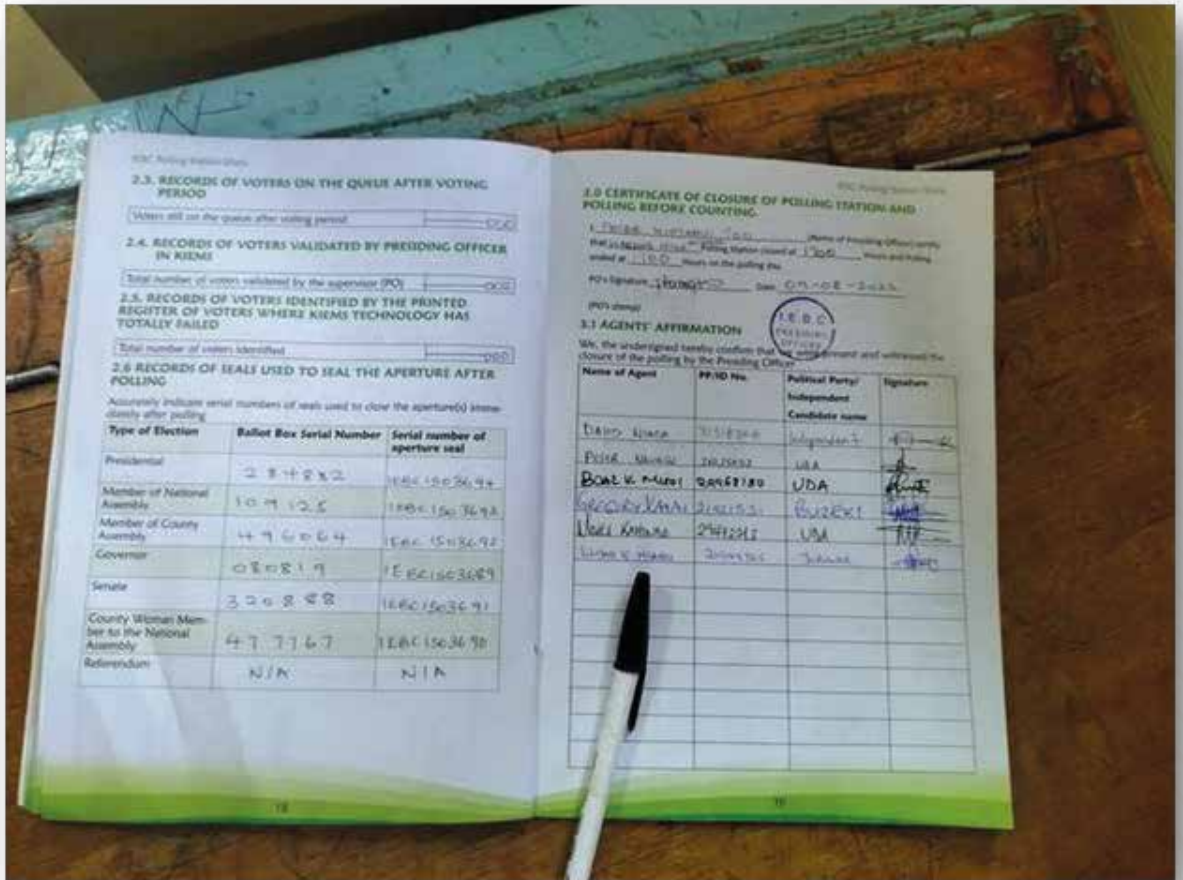 IEBC Polling Station Diary
2.3. RECORDS OF VOTERS ON THE QUEUE AFTER VOTING
PERIOD
Voters still on the queue after voting period 000
2.4. RECORDS OF VOTERS VALIDATED BY PRESIDING OFFICER
IN KIEMS
Total number of voters validated by the supervisor (PO) 000
2.5. RECORDS OF VOTERS IDENTIFIED BY THE PRINTED
REGISTER OF VOTERS WHERE KIEMS TECHNOLOGY HAS
TOTALLY FAILED
Total number of voters identified 000
2.6 RECORDS OF SEALS USED TO SEAL THE APERTURE AFTER
POLLING
Accurately indicate serial numbers of seals used to close the aperture(s) imme-
diately after polling
Type of Election Ballot Box Serial Number Serial number of
aperture seal
Presidential 284882 IEBC1503694
Member of National
Assembly 109125
Member of County
Assembly 496064
Governor 080819 IEBC1503689
Senate 320888 IEBC1503691
County Woman Mem-
ber to the National
Assembly 477767 IEBC1503690
Referendum N/A N/A
18
IEBC Polling Station Diary
3.0 CERTIFICATE OF CLOSURE OF POLLING STATION AND
POLLING BEFORE COUNTING.
I (Name of Presiding Officer) certify
that Polling Station closed at 1700 hours and Polling
ended at hours on the polling day.
PO's Signature Date 09-08-2022
(PO's stamp)
I.E.B.C
PRESIDING
OFFICER
3.1 AGENTS' AFFIRMATION
We, the undersigned hereby confirm that we were present and witnessed the
closure of the polling by the Presiding Officer
Name of Agent PP/ID No. Political Party/
Independent
Candidate name Signature
DAVID Independent
PETER UDA
BOAZ K. 20968180 UDA
GREGORY BUZEKI
UDA
19